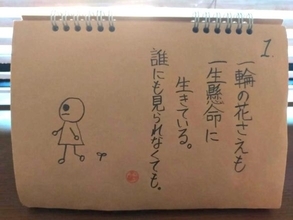 1.
一輪の花さえも
一生懸命に
生きている。
誰にも見られなくても。